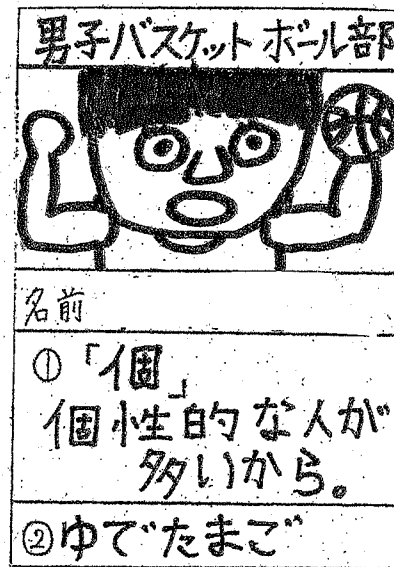 男子バスケットボール部
名前
①「個」
個性的な人が
多いから。
②ゆでたまご